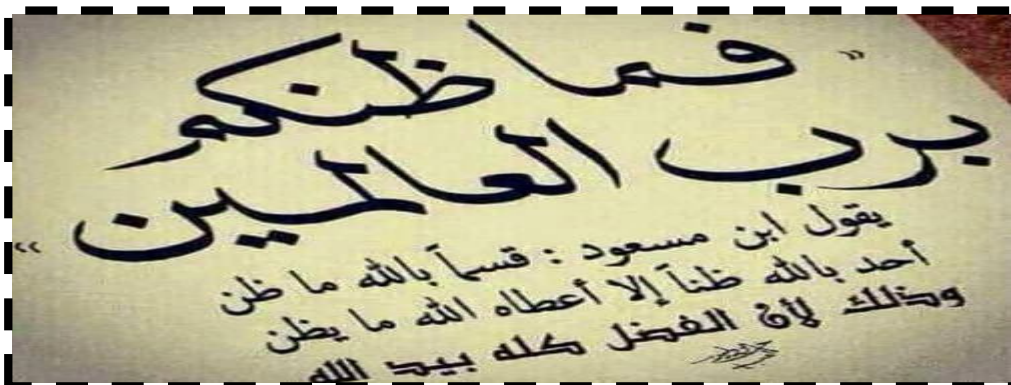 " فما ظنكم
برب العالمين "
يقول ابن مسعود : قسماً بالله ما ظن
أحد بالله ظناً إلا أعطاه الله ما يظن
وذلك لأن الفضل كله بيد الله